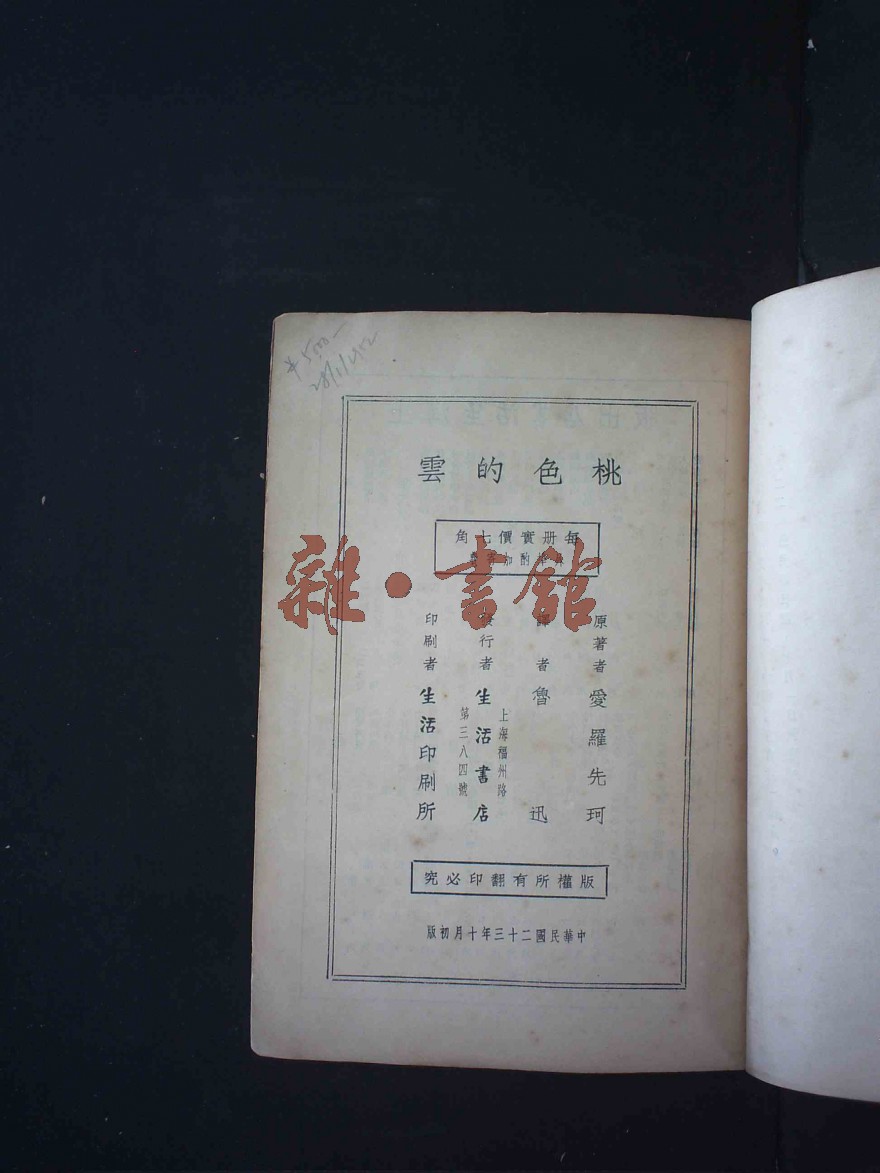 桃色的雲
每册實價七角
酌加
原著者 愛羅先珂
譯者 魯迅
發行者 生活書店
上海福州路
第三八四號
印刷者 生活印刷所
版權所有翻印必究
中華民國二十三年十月初版
雜·書館